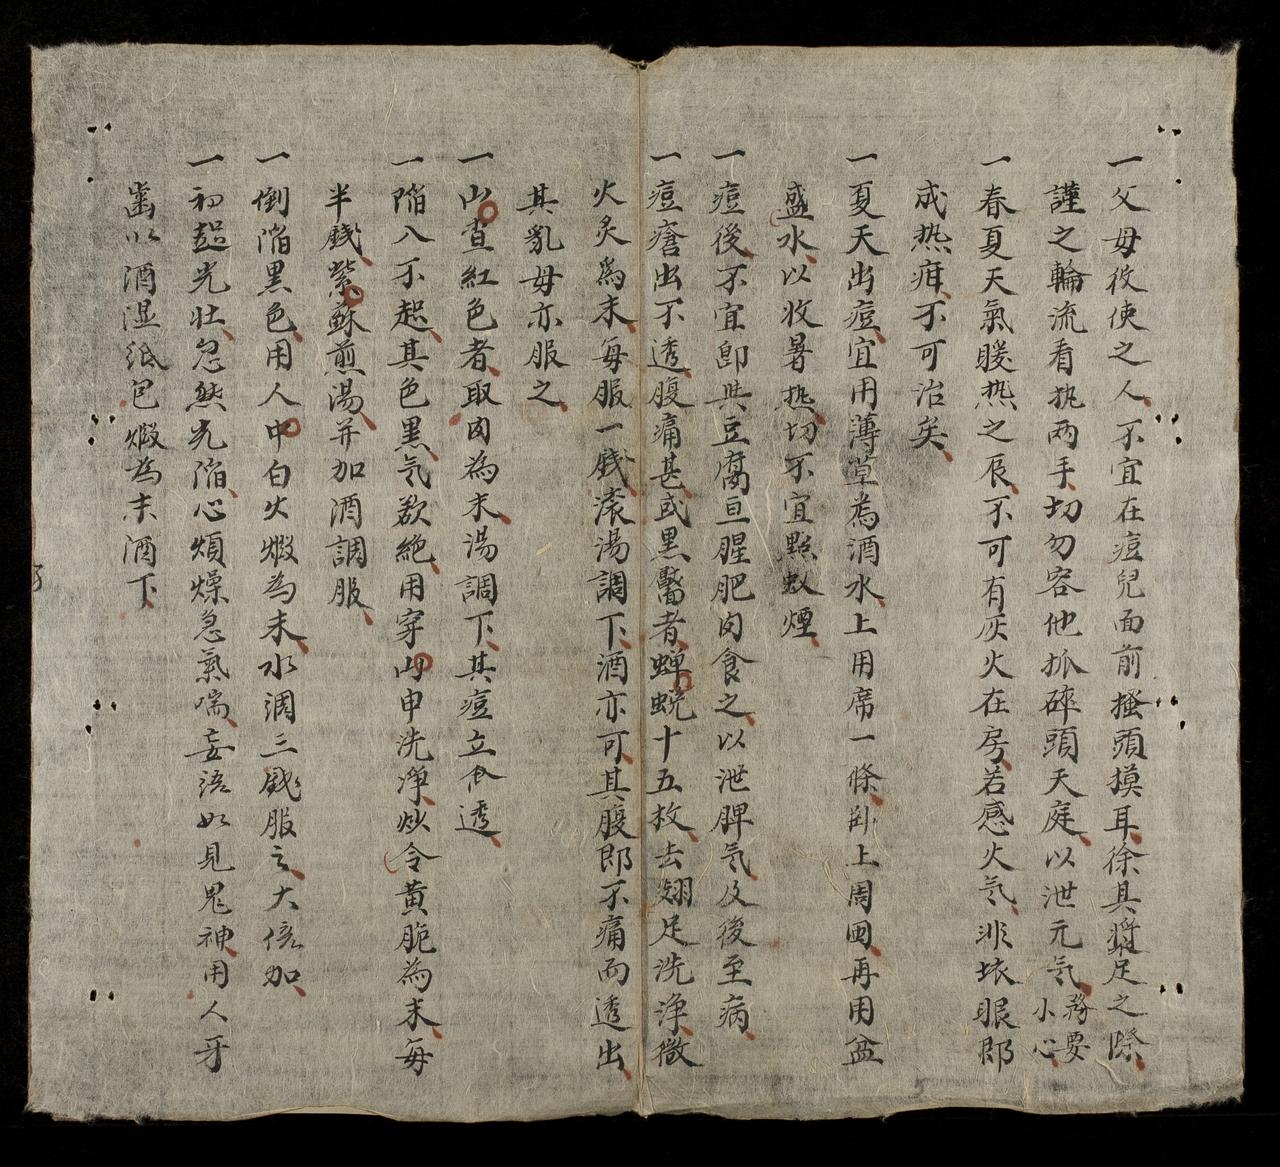 一父母役使之人不宜在痘兒面前搔頭摸耳徐其漿足之際
謹之輪流看执两手切勿容他抓碎頭天庭以泄元気務要小心
一春夏天氣暖热之辰不可有灰火在房若感火気非坏眼郎
成热疳不可治矣
一夏天出痘宜用薄草為洒水上用席一條卧上周囲再用盆
盛水以收暑热切不宜點蚊煙
一痘後不宜即與豆腐亘腥肥肉食之以泄脾気及後至病
一痘瘡出不透腹痛甚或黒黶者蝉蜕十五枚去翅足洗淨微
火炙爲末每服一戔滚湯調下酒亦可其腹郎不痛而透出
其乳母亦服之
一山查紅色者取肉為末湯調下其痘立食透
一陥入不起其色黒気欲絶用穿山甲洗淨炒令黄脆為末每
半戔紫蘇煎湯并加酒調服
一倒陥黒色用人中白火煅為末水調三戔服之大倍加
一初起光壮忽然光陥心煩燥急氣喘妄語如見鬼神用人牙
齒以酒湿纸包煅為末酒下